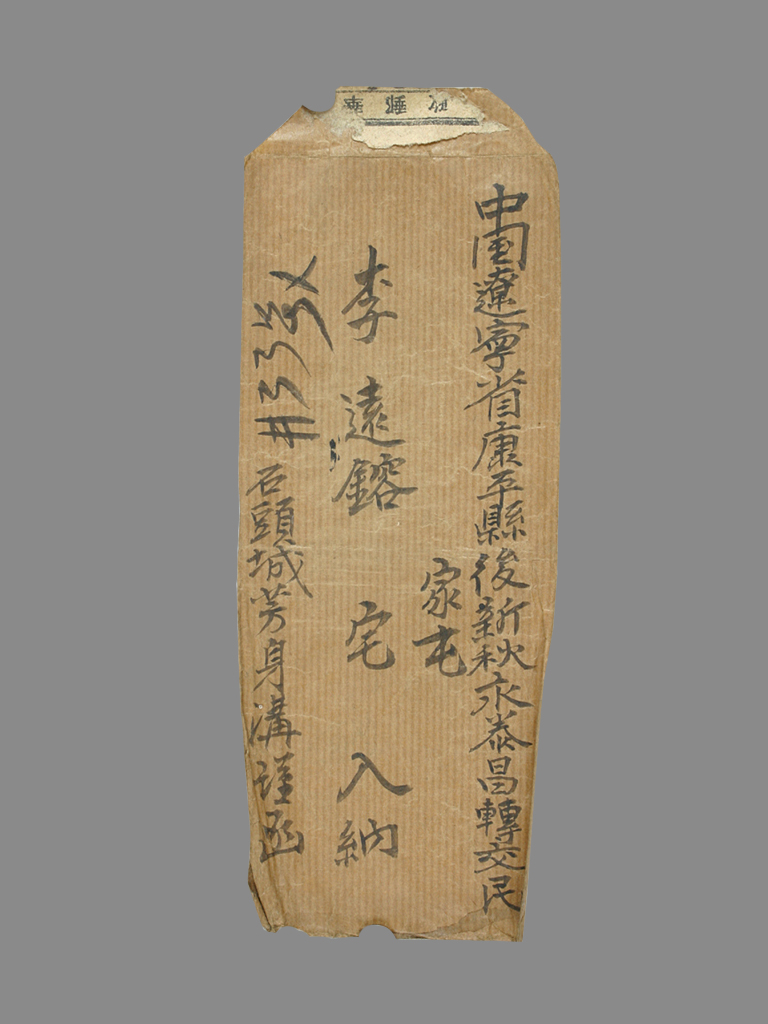 中国遼寧省康平縣後新秋永泰昌轉交民
家屯
李遠鎔 宅 入納
石頭城芳身溝謹函